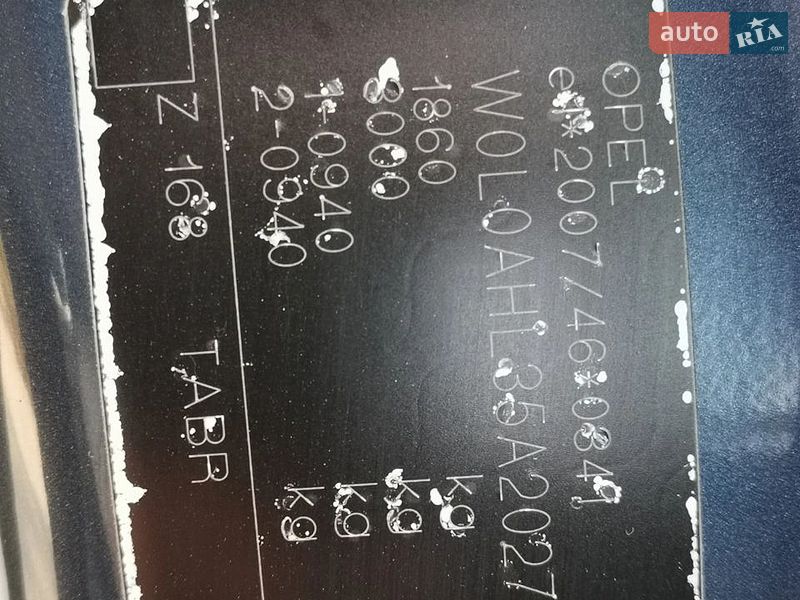 OPEL
e1*2007/46*0841
W0L0AHL35A2027
1860 kg
3000 kg
1-0940 kg
2-0940 kg
Z 168 TABR
auto RIA .com